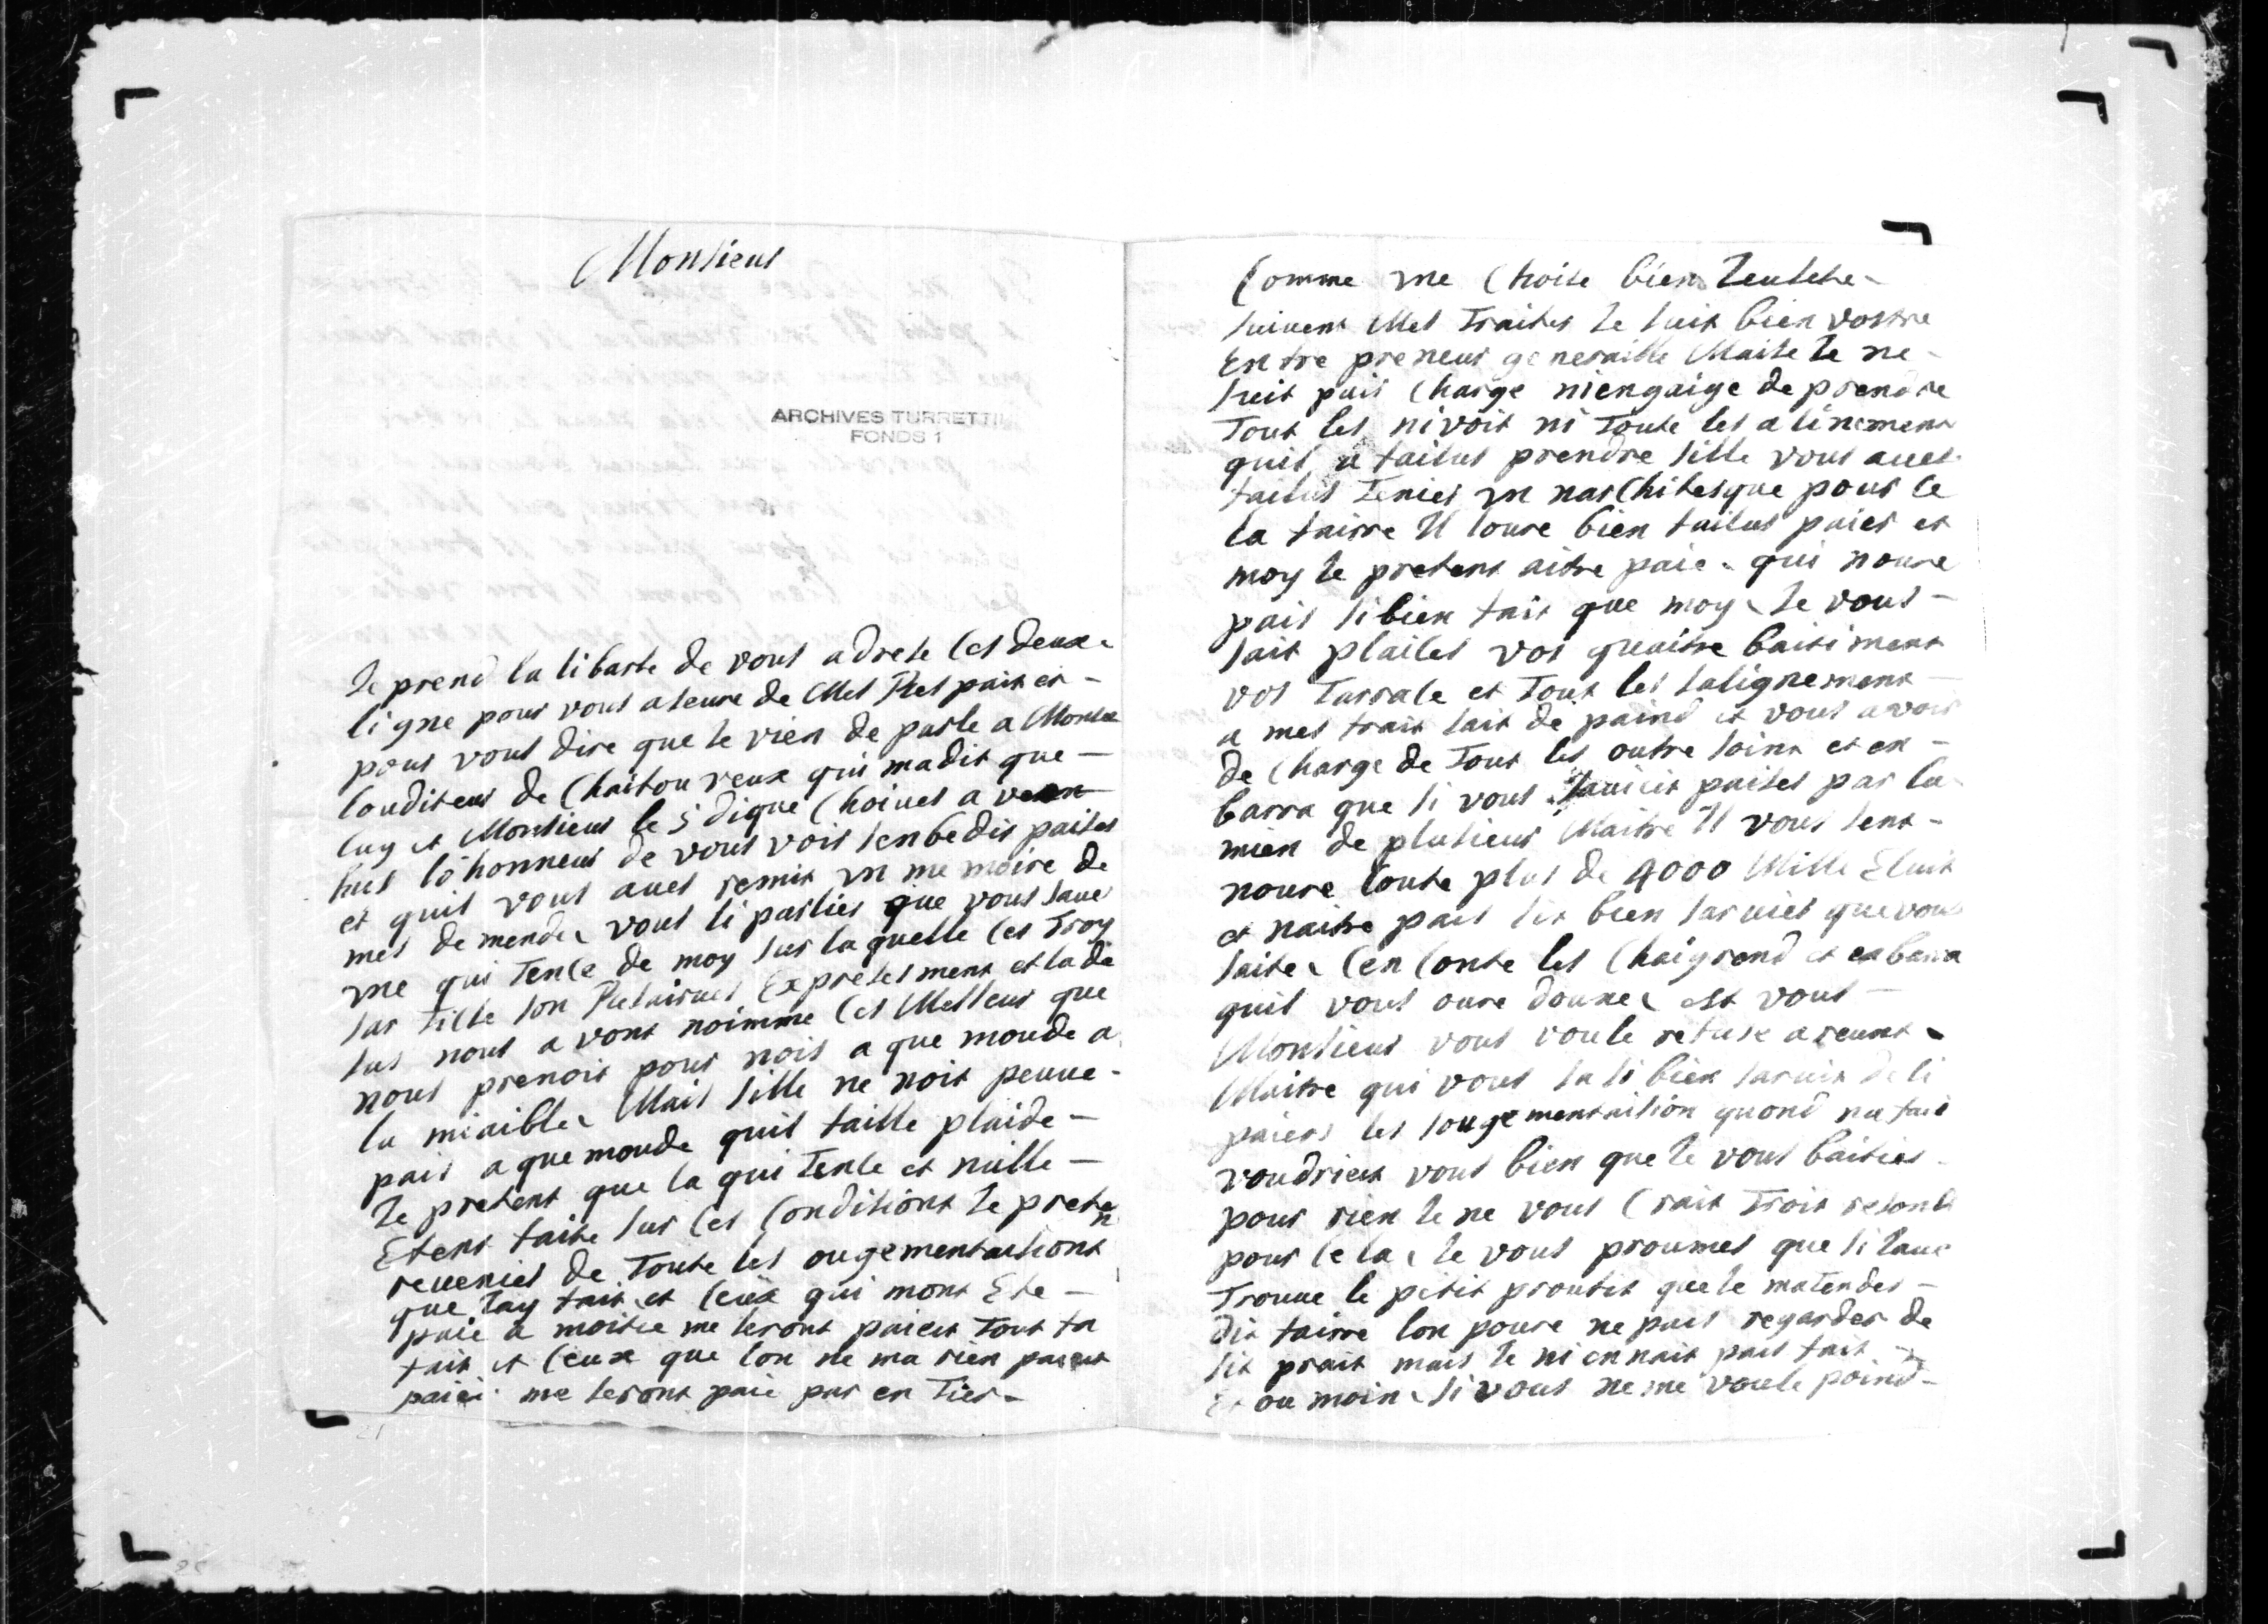 Monsieur
ARCHIVES TURRETTI
FONDS 1
Je prend la libarte de vous adrese ces deux
ligne pour vous aseure de mes Respait et
pour vous dire que je vien de parle a Monse
lauditeur de Chaitouveux qui madit que
luy et Monsieur le sidique Choiues a
hus lo honneur de vous vois senbedis paises
et quil vous aues remis un me moire de
mes demende vous si parlies que vous saue
une qui tence de moy sur laquelle ces Troy
sar tille son Reserues Expresesment et la de
sus nous a vons noimme ces Messeur que
nous prenois pour nois a que moude a
la miaible Mais sille ne nois peuue
pais a que moude quil faille plaide
Je pretens que la qui tence et nulle
Etens faite sur ces Conditions Je preten
reuenies de Toute les ougementasions
que Jay fait et ceux qui mont Ete
paie a moitie me seront paieis Tout ta
fait et ceux que lon ne ma rien
paiei me seront paie par en tier
Comme une Choise bien
suivent Mes Traites Je suis bien vostre
Entre preneur generaille Maise Je ne
suis pais Charge niengaige de prendre
Tout les nivois ni Toute les a linemens
quil a failus prendre sille vous aues
failus Tenies un narChitesque pour ce
la faire Il loure bien failus paies et
moy Je pretens aitre paie qui noure
pais si bien fait que moy Je vous
fait plaises vos quaitre baitiment
vos Tarrase et Tout les salignement
a mes frait sait de paind et vous avois
de Charge de Tout les outre soins et en
barra que si vous sauieis paises par la
mien de plusieur Maitre Il vous sens
noure Coute plus de 4000 Mille Eluit
et naitre pais sit bien saruies que vous
saite Cen Conte les Chaigrend et enbarra
quil vous oure donne est vous
Monsieur vous voule refuse a reunt
Maitre qui vous sa si bien saruit de li
paiers les sougementaision quond na fait
voudrieis vous bien que Je vous baities
pour rien Je ne vous Crait Trois resons
pour cela Je vous proumes que si Jaue
Trouue le petit proufit que Je matendes
dit fairre lon poure ne pais regarder de
sit prait mais Je ni en nait pais fait
Et ou moin si vous ne me voule poind